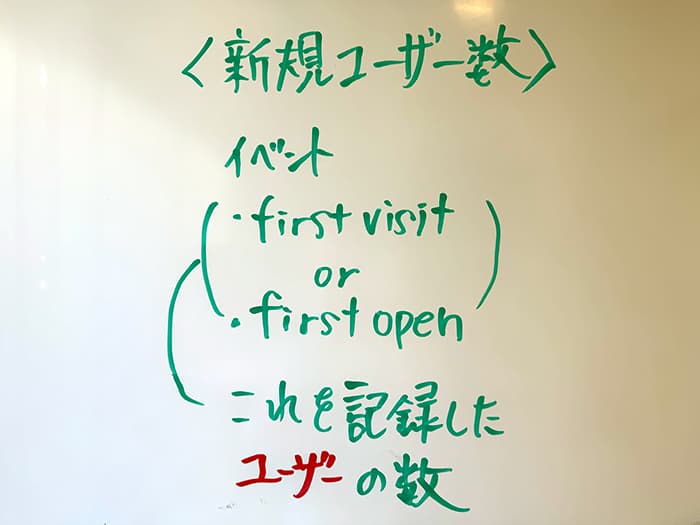 〈新規ユーザー数〉
イベント
・first visit
or
・first open
これを記録した
ユーザーの数